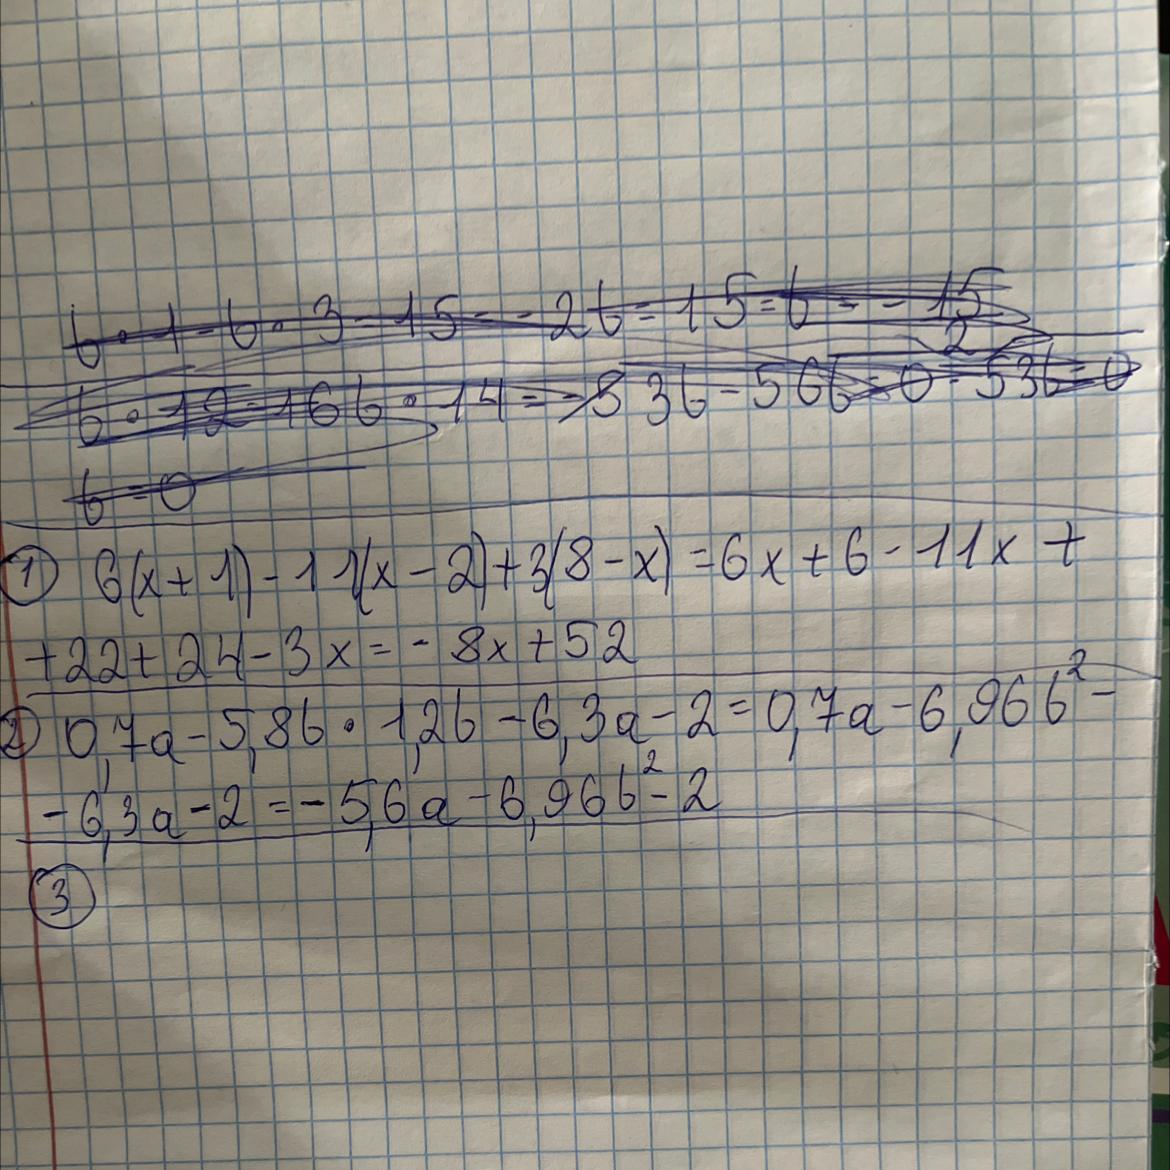 b · 1 - b · 3 - 15 = - 2b = 15 = b = - 15/2
b · 12 - 16b · 14 = - 53b - 56b = 0 = 53b = 0
b = 0
① 6(x + 1) - 11(x - 2) + 3(8 - x) = 6x + 6 - 11x +
+ 22 + 24 - 3x = - 8x + 52
② 0,7a - 5,8b · 1,2b - 6,3a - 2 = 0,7a - 6,96b² -
- 6,3a - 2 = - 5,6a - 6,96b² - 2
③